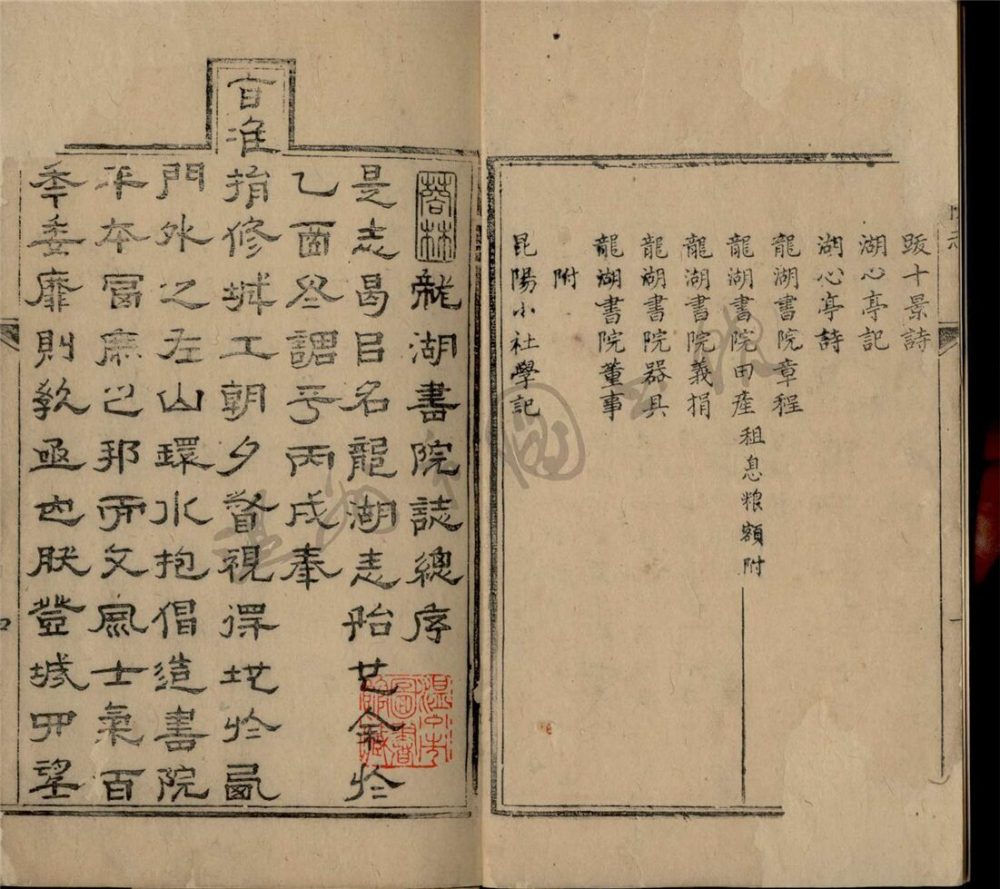 跋十景詩
湖心亭記
湖心亭詩
龍湖書院章程
龍湖書院田產 租息粮額附
龍湖書院義捐
龍湖書院器具
龍湖書院董事
附
昆陽小社學記
蓉林
龍湖書院誌總序
是志曷㠯名龍湖志於
乙酉冬調平丙戌奉
旨准捐修城工朝夕督視得地於鳳
門外之左山環水抱倡造書院
平本富庶之邦而文風士氣百
秊委靡則教亟也登城四望
溫州市圖書館藏